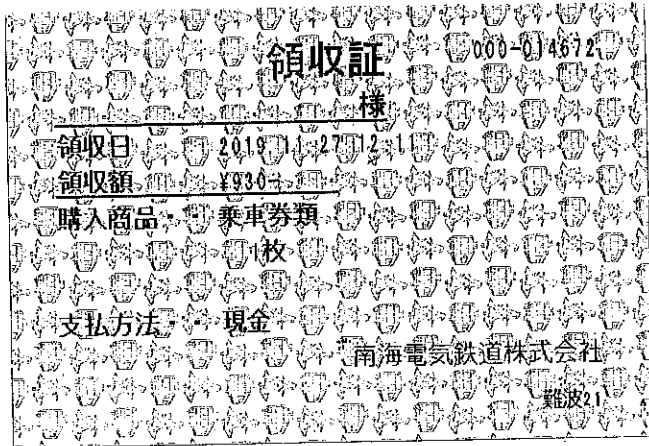 領収証
000-014672
様
領収日 2019.11.27 12:11
領収額 ¥930-
購入商品・ 乗車券類
1枚
支払方法・・ 現金
南海電気鉄道株式会社
難波21